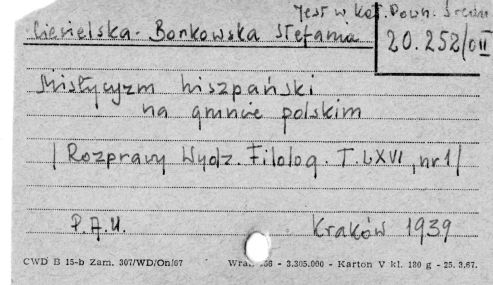 Jest w kat. Pown. Średn
Ciesielska-Borkowska Stefania
20.252/oII
Mistycyzm hiszpański
na gruncie polskim
/Rozprawy Wydz. Filolog. T. LXVI, nr 1/
P.A.U. Kraków 1939
CWD B 15-b Zam. 307/WD/On/67 - 3.305.000 - Karton V kl. 180 g - 25.3.67.